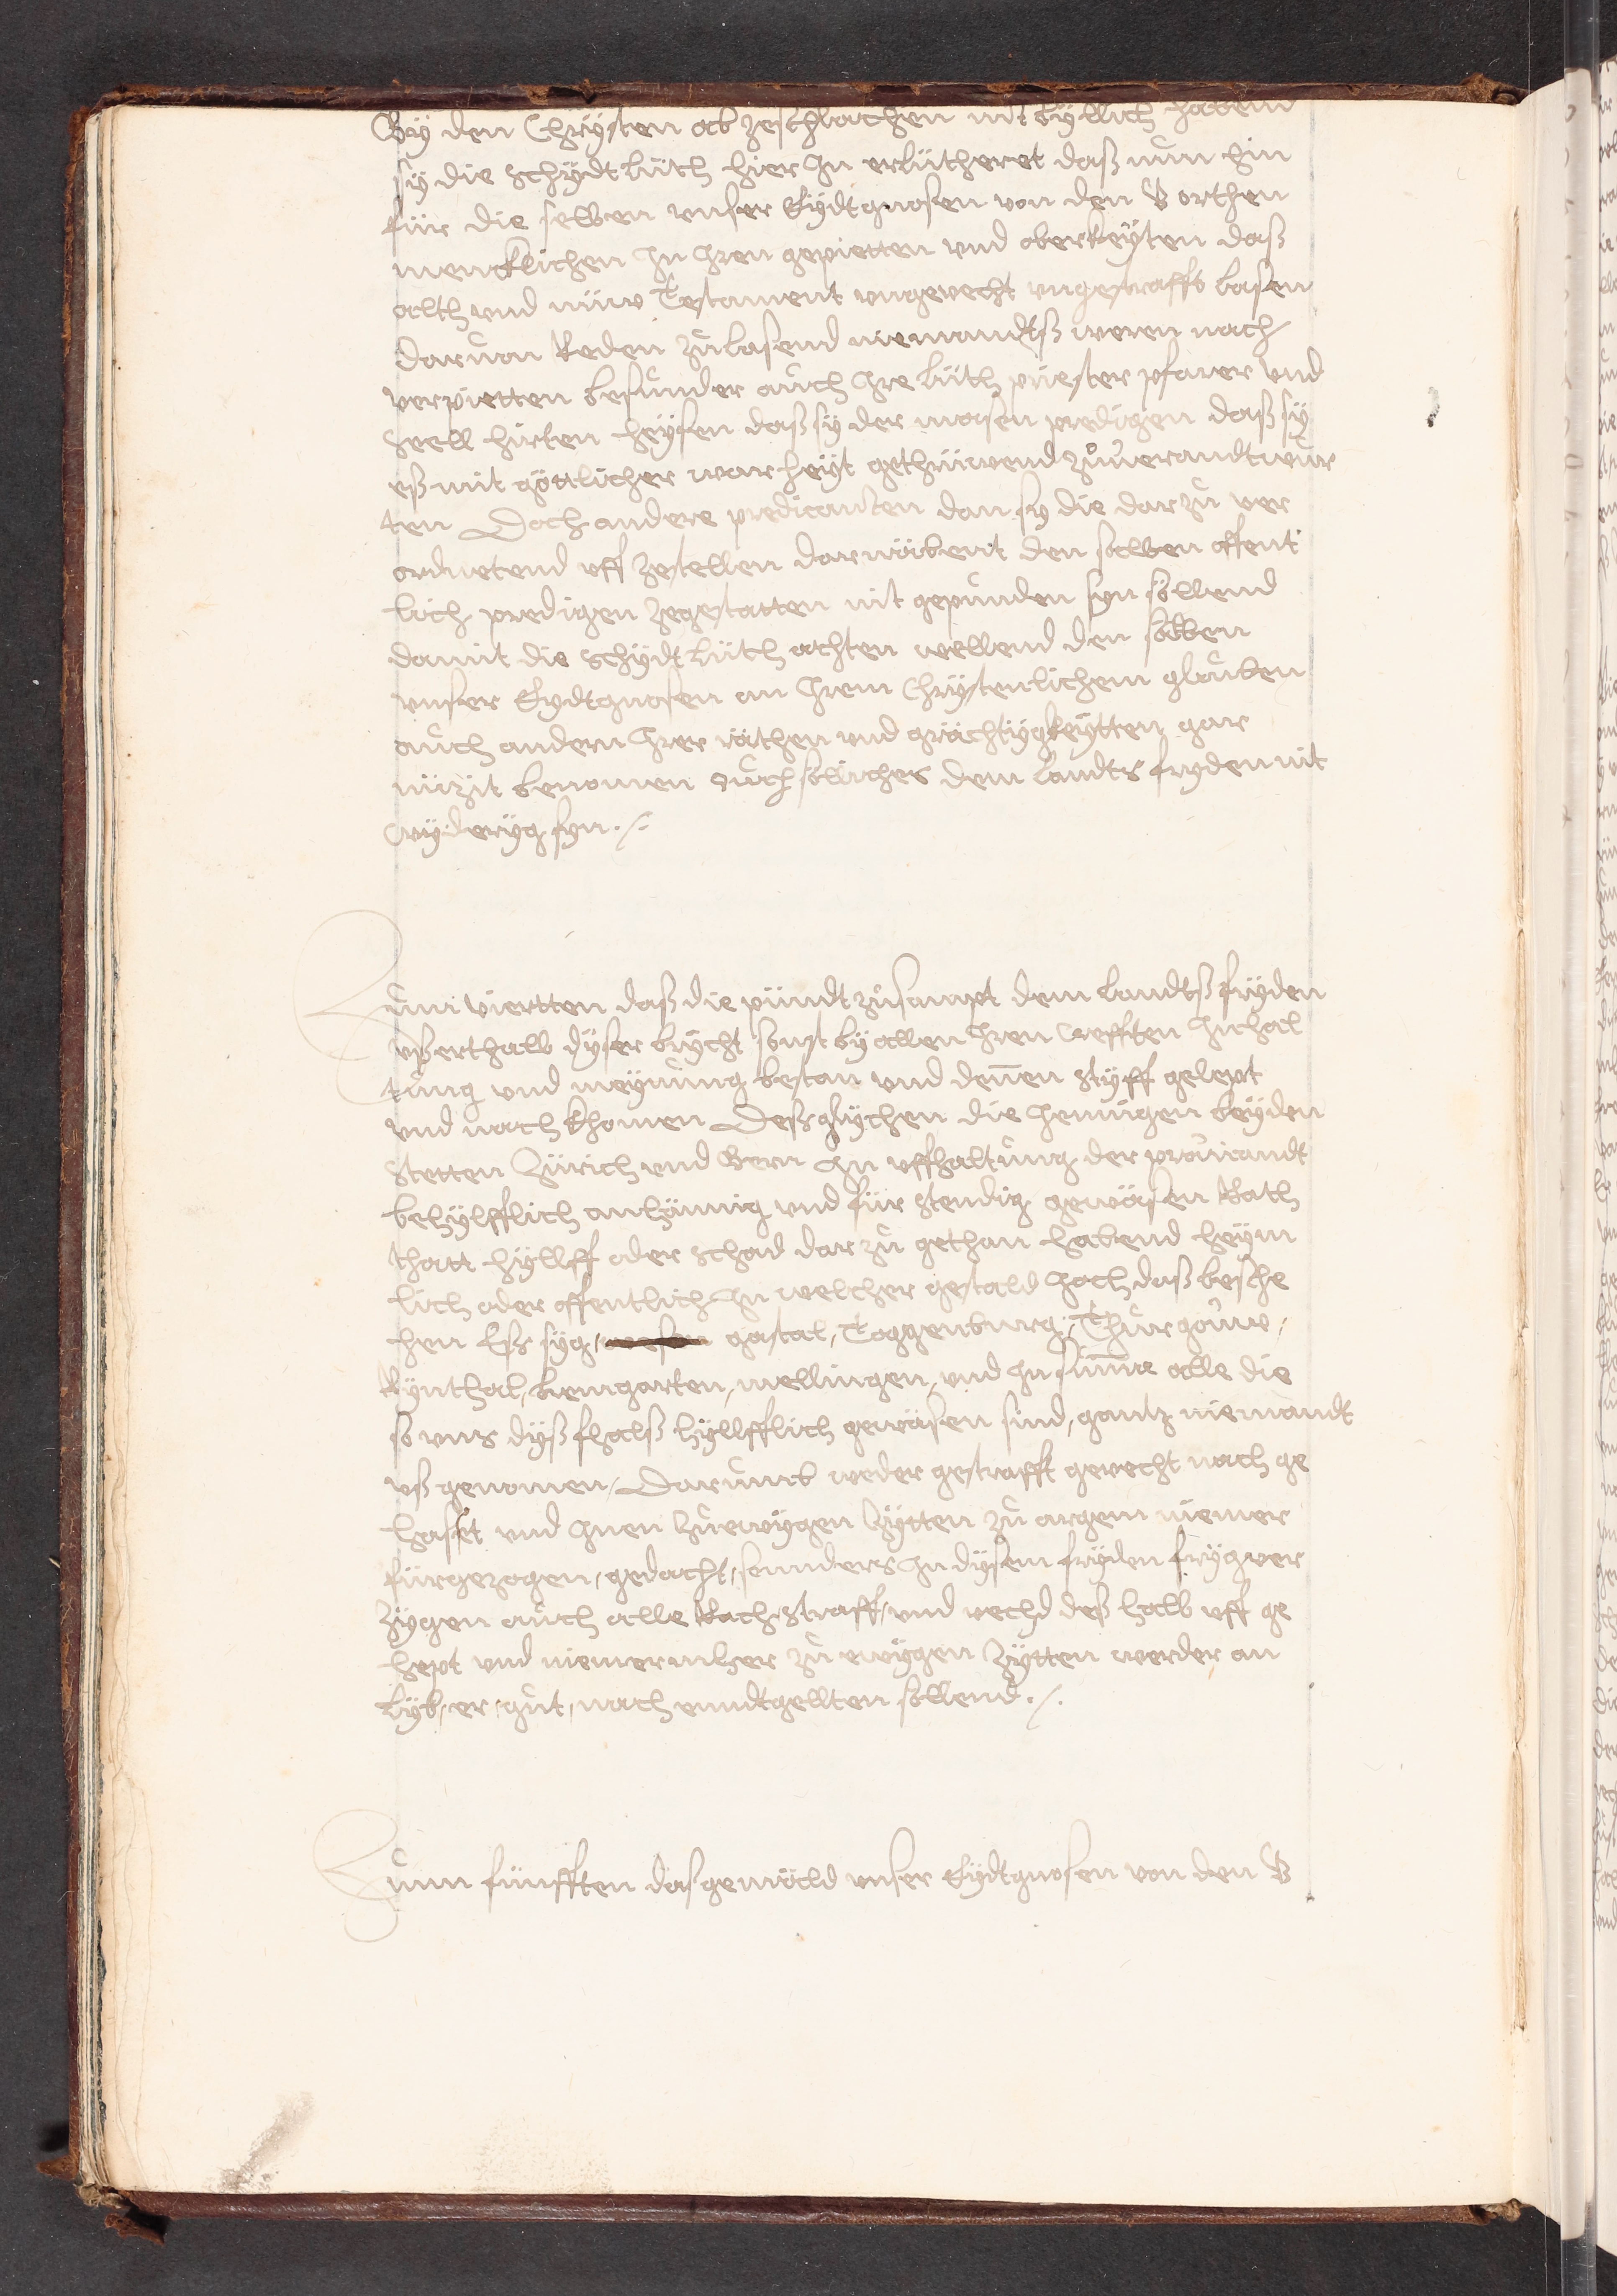 By den Chrÿsten ab zeschlachen nit byllich habend
sÿ die schÿdt lüth hier jn erlütheret daß nun hin
für die selben vnser Eÿdtgnosen von den V orthen
mencklichen jn jren gepietten vnd oberkeÿten daß
alth vnd nüw Testament vngevecht vngestrafft lasen
daruon Reden zulasend niemandtß weren nach
verpietten besunder auch jre lüth priester pfarer vnd
seell hirten heÿsen daß sÿ der masen predigen daß sÿ
eß mit göttlicher warheÿt gethrüwend zuuerandtwur
ten Doch andere predicanten dan sy die dar zu ver
ordnetend vff zestellen darnäbent den selben offent
lich predigen zegestatten nit gepunden syn söllend
damit die schÿdt lüth achten wellend den selben
vnser Eydtgnosen an jrem Chrÿstenlichem glauben
auch andern jrer räthen vnd grächtÿgkeÿtten gar
nüzit benomen ouch söliches dem landts frÿden nit
wÿderÿg syn ./.
Zum viertten daß die pündt zusampt dem landtß frÿden
vsserthalb dÿser brÿcht sunst bÿ allen jren crefften jnhal
tung vnd meÿnung bestan vnd denen stÿff gelept
vnd nach khomen Deßglÿchen die jennigen beÿden
Stetten Zürich vnd Bern jn vffhaltung der prouiandt
behÿlfflich anhännig vnd für stendig gewäsen Rath
thatt hÿllff oder schad dar zu gethan habend heÿm
lich oder offentlich jn welcher gestald joch daß besche
hen Eß sÿg, gastal, Toggenburg, Thurgöuw,
Rÿnthal, bremgarten, mellingen, vnd jn suma alle die
so vns dÿß fhalß hÿllfflich gewäsen sind, gantz niemandt
vß genomen, Darumb weder gestrafft gevecht nach ge
hasset vnd jnen zu ewÿgen zÿtten zu argem niemer
fürgezogen, gedacht, sunders jn dÿsem frÿden frÿg ver
zÿgen auch alle Rach, straff, vnd vechd deß halb vff ge
hept vnd niemermher zu ewÿgen zÿtten werder an
lÿb, er, gut, nach enndtgellten söllend ./.
Zum fünfften das gemäld vnser Eÿdtgnosen von den V